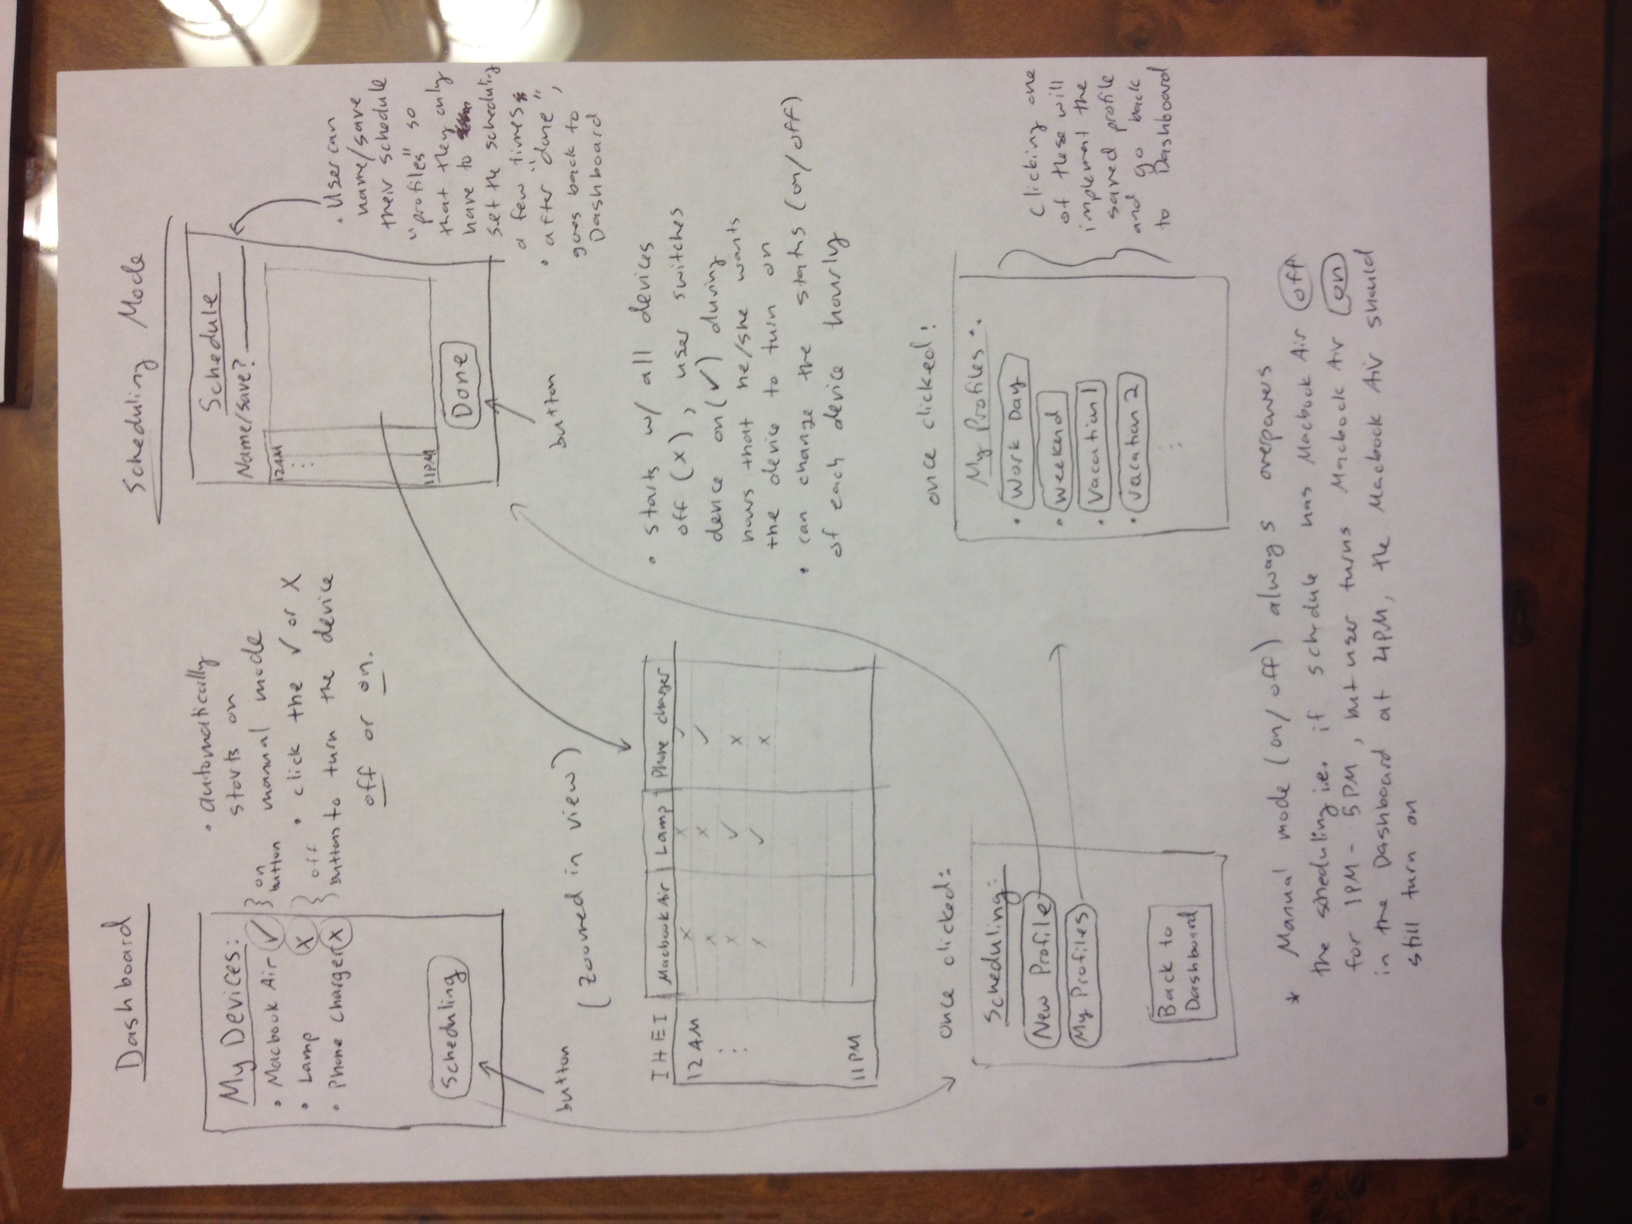 Dashboard
My Devices:
• Macbook Air ✓
• Lamp X
• Phone charger X
} on
button
} off
buttons
Scheduling
button
• automatically
starts on
manual mode
• click the ✓ or X
to turn the device
off or on.
Scheduling Mode
Schedule
Name/save?
12AM
11PM
Done
button
• User can
name/save
their schedule
"profiles" so
that they only
have to
set the scheduling
a few times
• after "done",
goes back to
Dashboard
(Zoomed in view)
Macbook Air Lamp Phone charger
12 AM X X ✓
X X ✓
X ✓ X
X ✓ X
11 PM
• starts w/ all devices
off (X), user switches
device on (✓) during
hours that he/she wants
the device to turn on
• can change the status (on/off)
of each device hourly
once clicked:
Scheduling:
New Profile
My Profiles
Back to
Dashboard
once clicked:
My Profiles:
• Work Day
• Weekend
• Vacation 1
• Vacation 2
Clicking one
of these will
implement the
saved profile
and go back
to Dashboard
* Manual mode (on/off) always overpowers
the scheduling i.e. if schedule has Macbook Air off
for 1PM - 5PM, but user turns Macbook Air on
in the Dashboard at 4PM, the Macbook Air should
still turn on